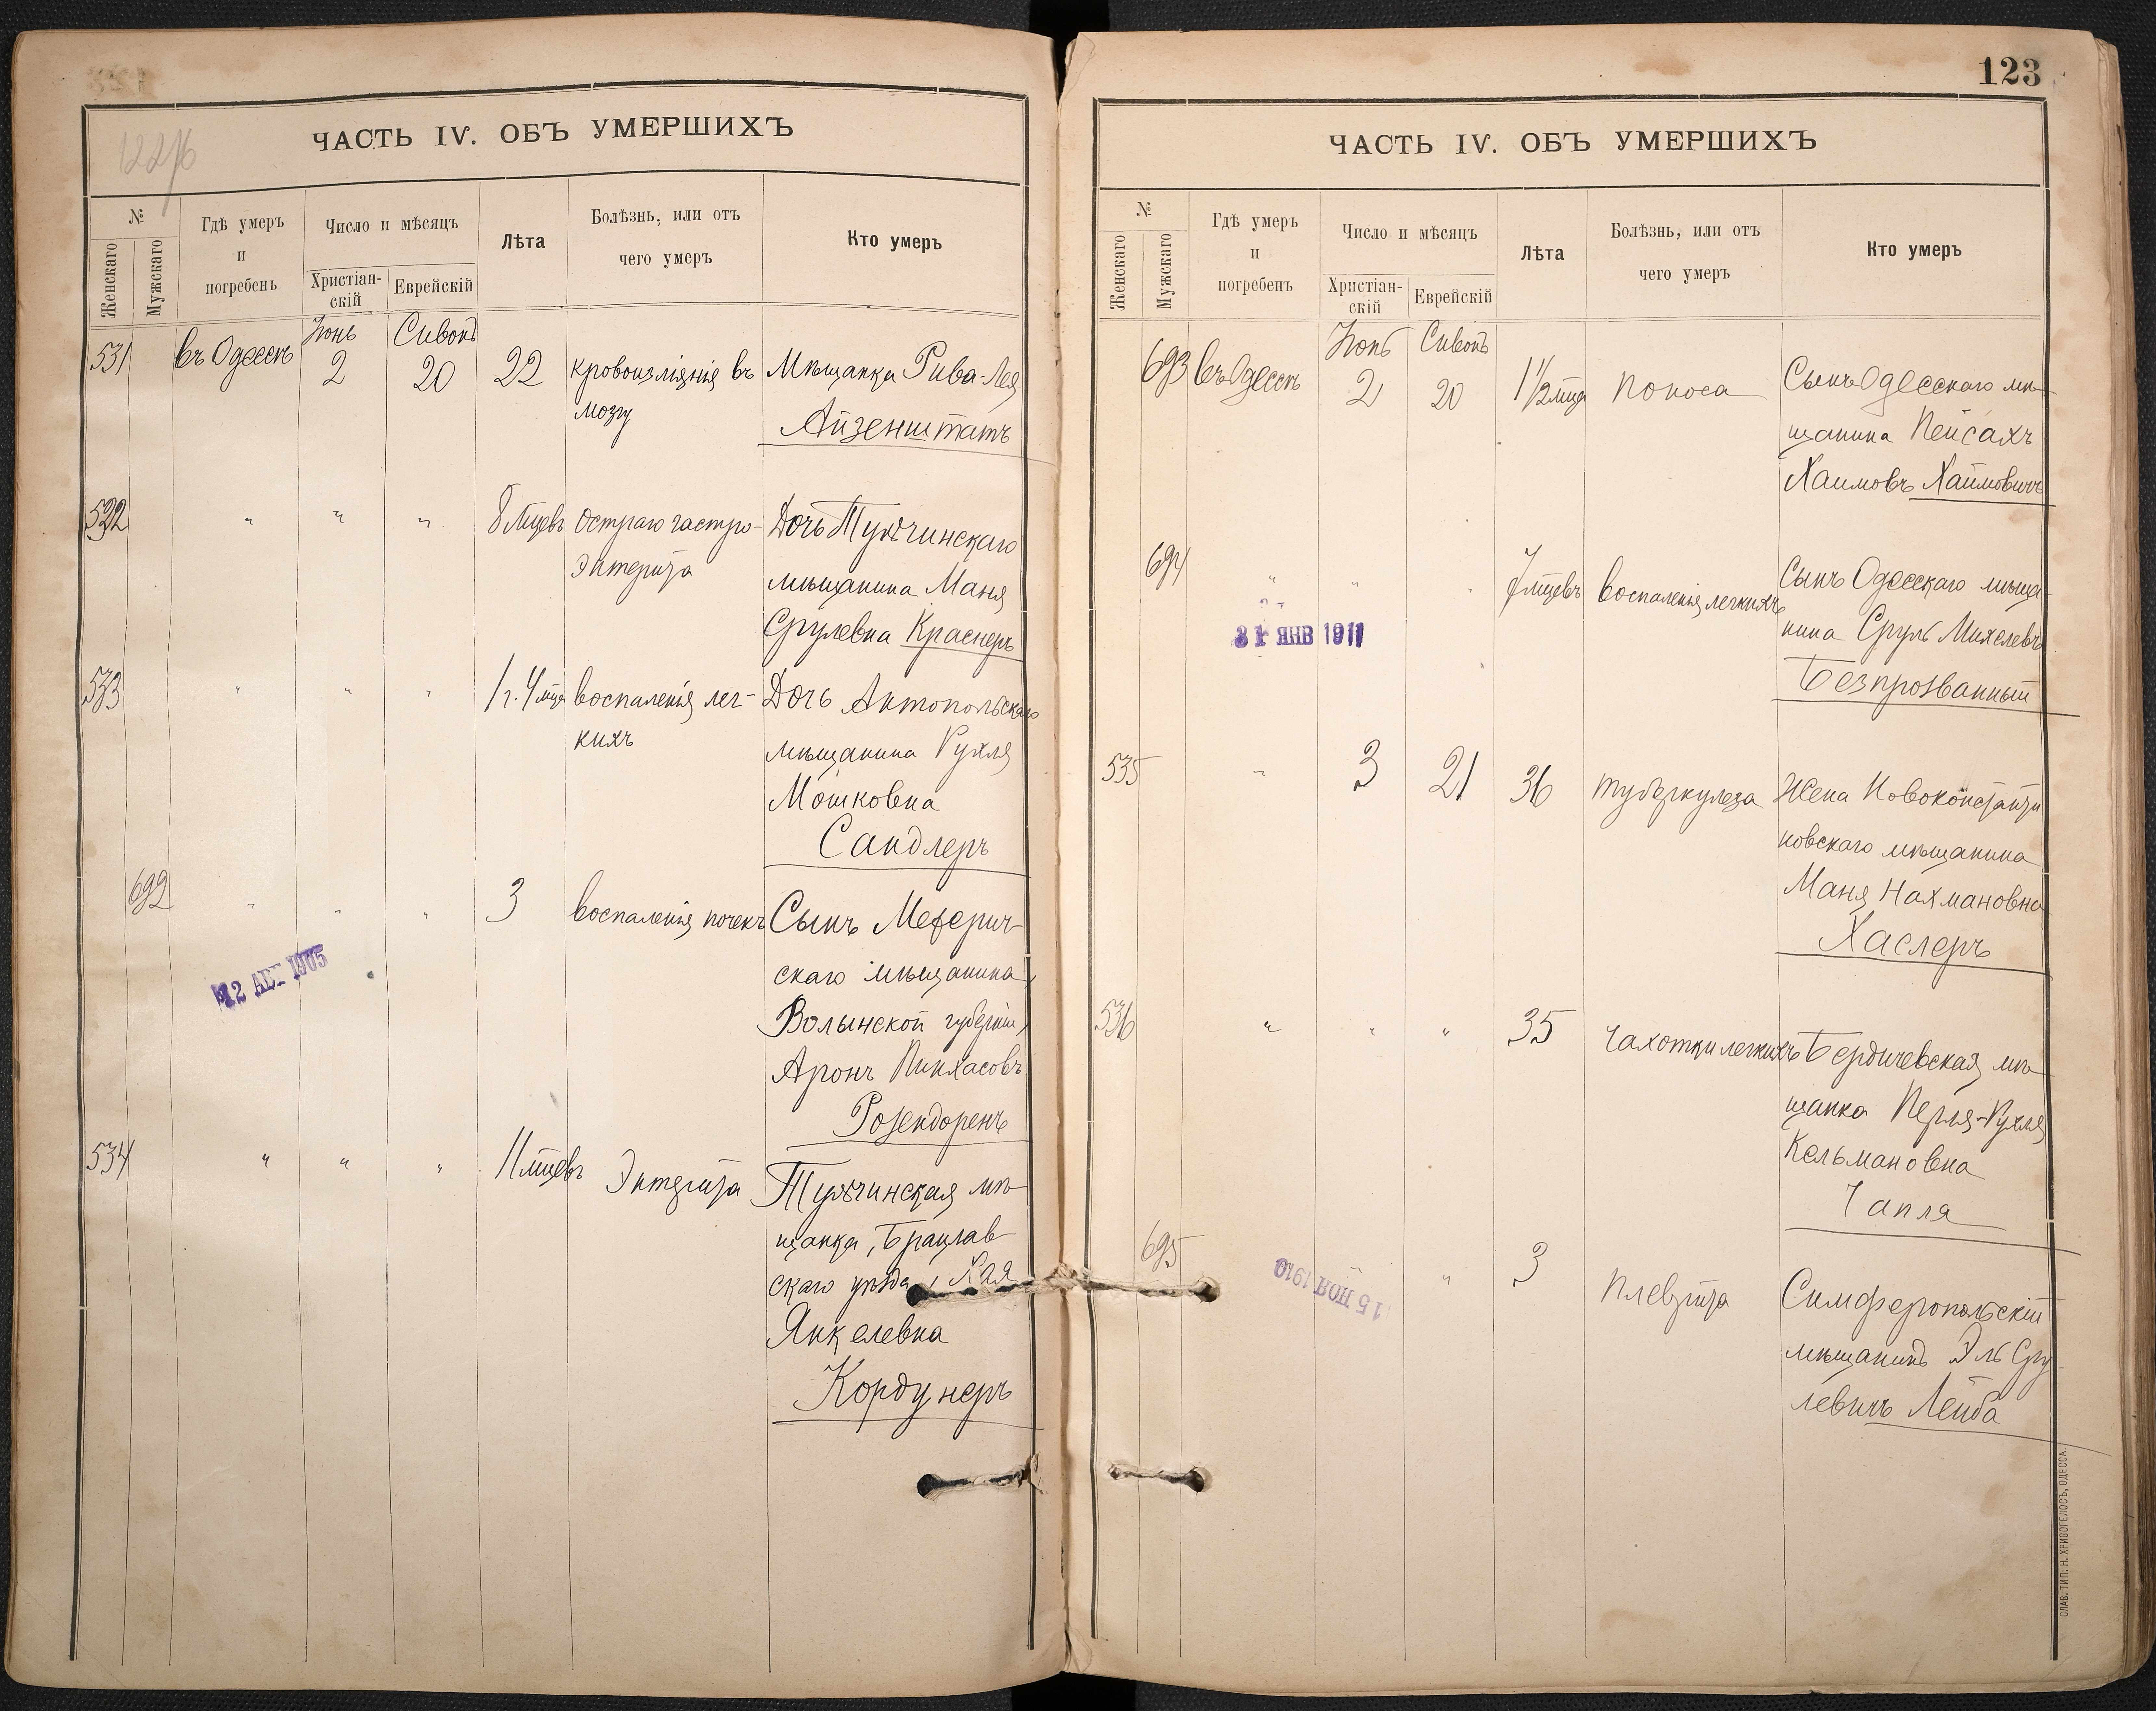 122/б
ЧАСТЬ IV. ОБЪ УМЕРШИХЪ
№
Женскаго
Мужскаго
Гдѣ умеръ
и
погребенъ
Число и мѣсяцъ
Христіан-
скій
Еврейскій
Лѣта
Болѣзнь, или отъ
чего умеръ
Кто умеръ
Іюнь Сивонъ
531 въ Одессѣ 2 20 22 кровоизліянія въ Мѣщанка Рива-Лея
мозгу
Айзенштатъ
532 " " " 8 мцевъ остраго гастро- Дочь Тульчинскаго
энтерита
мѣщанина Маня
Срулевна Краснеръ
533 " " " 1 г. 4 мца воспаленія лег- Дочь Антопольскаго
кихъ
мѣщанина Рухля
Мошковна
Сандлеръ
692 " " " 3 воспаленія почекъ Сынъ Межерич-
скаго мѣщанина,
Волынской губерніи,
Аронъ Пинхасовъ
Розендоренъ
12 АВГ 1905
534 " " " 11 мцевъ Энтерита Тульчинская мѣ-
щанка, Брацлав-
скаго уѣзда, Хая
Янкелевна
Кордунеръ
123
ЧАСТЬ IV. ОБЪ УМЕРШИХЪ
№
Женскаго
Мужскаго
Гдѣ умеръ
и
погребенъ
Число и мѣсяцъ
Христіан-
скій
Еврейскій
Лѣта
Болѣзнь, или отъ
чего умеръ
Кто умеръ
Іюнь Сивонъ
693 въ Одессѣ 2 20 1 1/2 мца поноса Сынъ Одесскаго мѣ-
щанина Пейсахъ
Хаимовъ Хаимовичъ
694 " " " 7 мцевъ воспаленія легкихъ Сынъ Одесскаго мѣща-
нина Сруль Михелевъ
Безпрозванный
31 ЯНВ 1911
535 " 3 21 36 туберкулеза Жена Новоконстанти
новскаго мѣщанина
Маня Нахмановна
Хаслеръ
536 " " " 35 чахотки легкихъ Бердичевская мѣ-
щанка Перля-Рухля
Кельмановна
Чапля
695 " " 3 плеврита Симферопольскій
мѣщанинъ Эль Сру-
левичъ Лейба
15 НОЯ 1910
СЛАВ. ТИП. Н. ХРИСОГЕЛОСЪ, ОДЕССА.